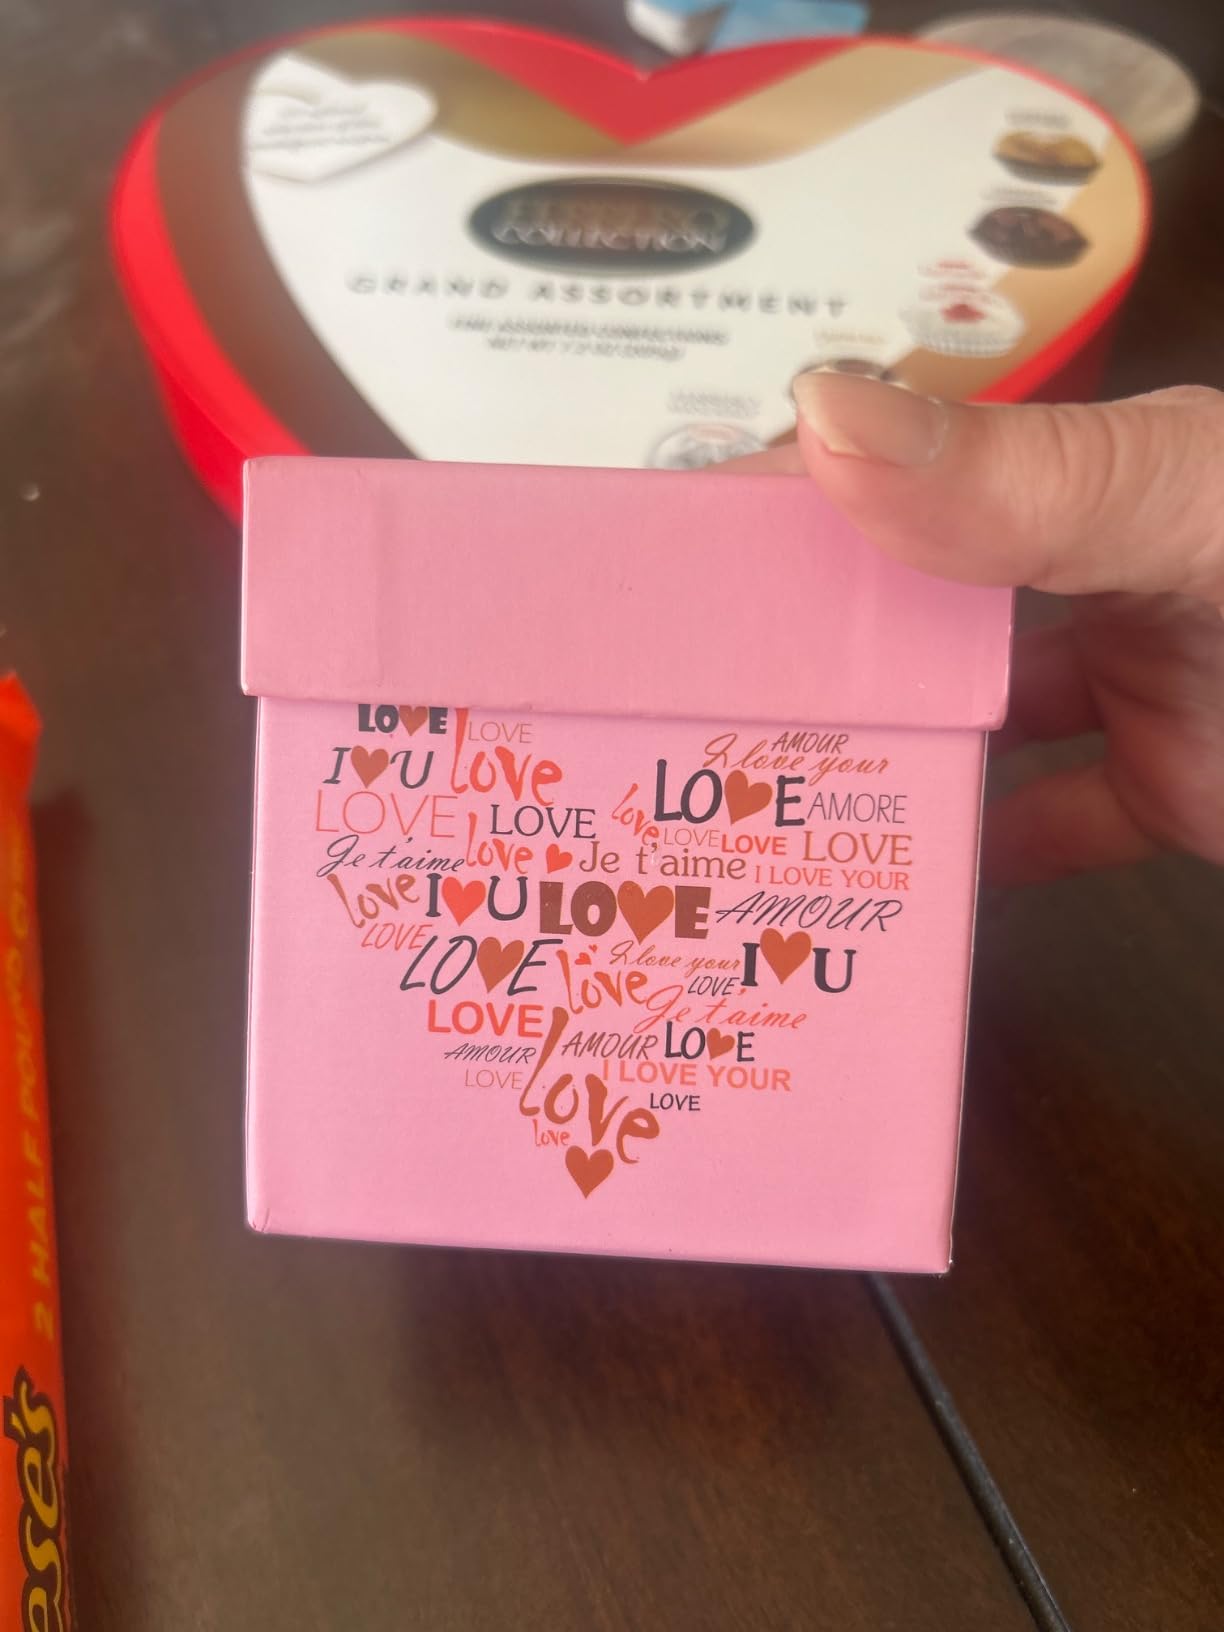 FERRERO
COLLECTION
GRAND ASSORTMENT
FINE ASSORTED CONFECTIONS
LOVE LOVE
I U love
AMOUR
I love your
LOVE AMORE
LOVE LOVE love
LOVE LOVE LOVE
Je t'aime love Je t'aime I LOVE YOUR
love I U LOVE AMOUR
LOVE LOVE love I love your I U
LOVE
LOVE Je t'aime
AMOUR AMOUR LOVE
LOVE love I LOVE YOUR
LOVE
love
2 HALF POUND CUPS